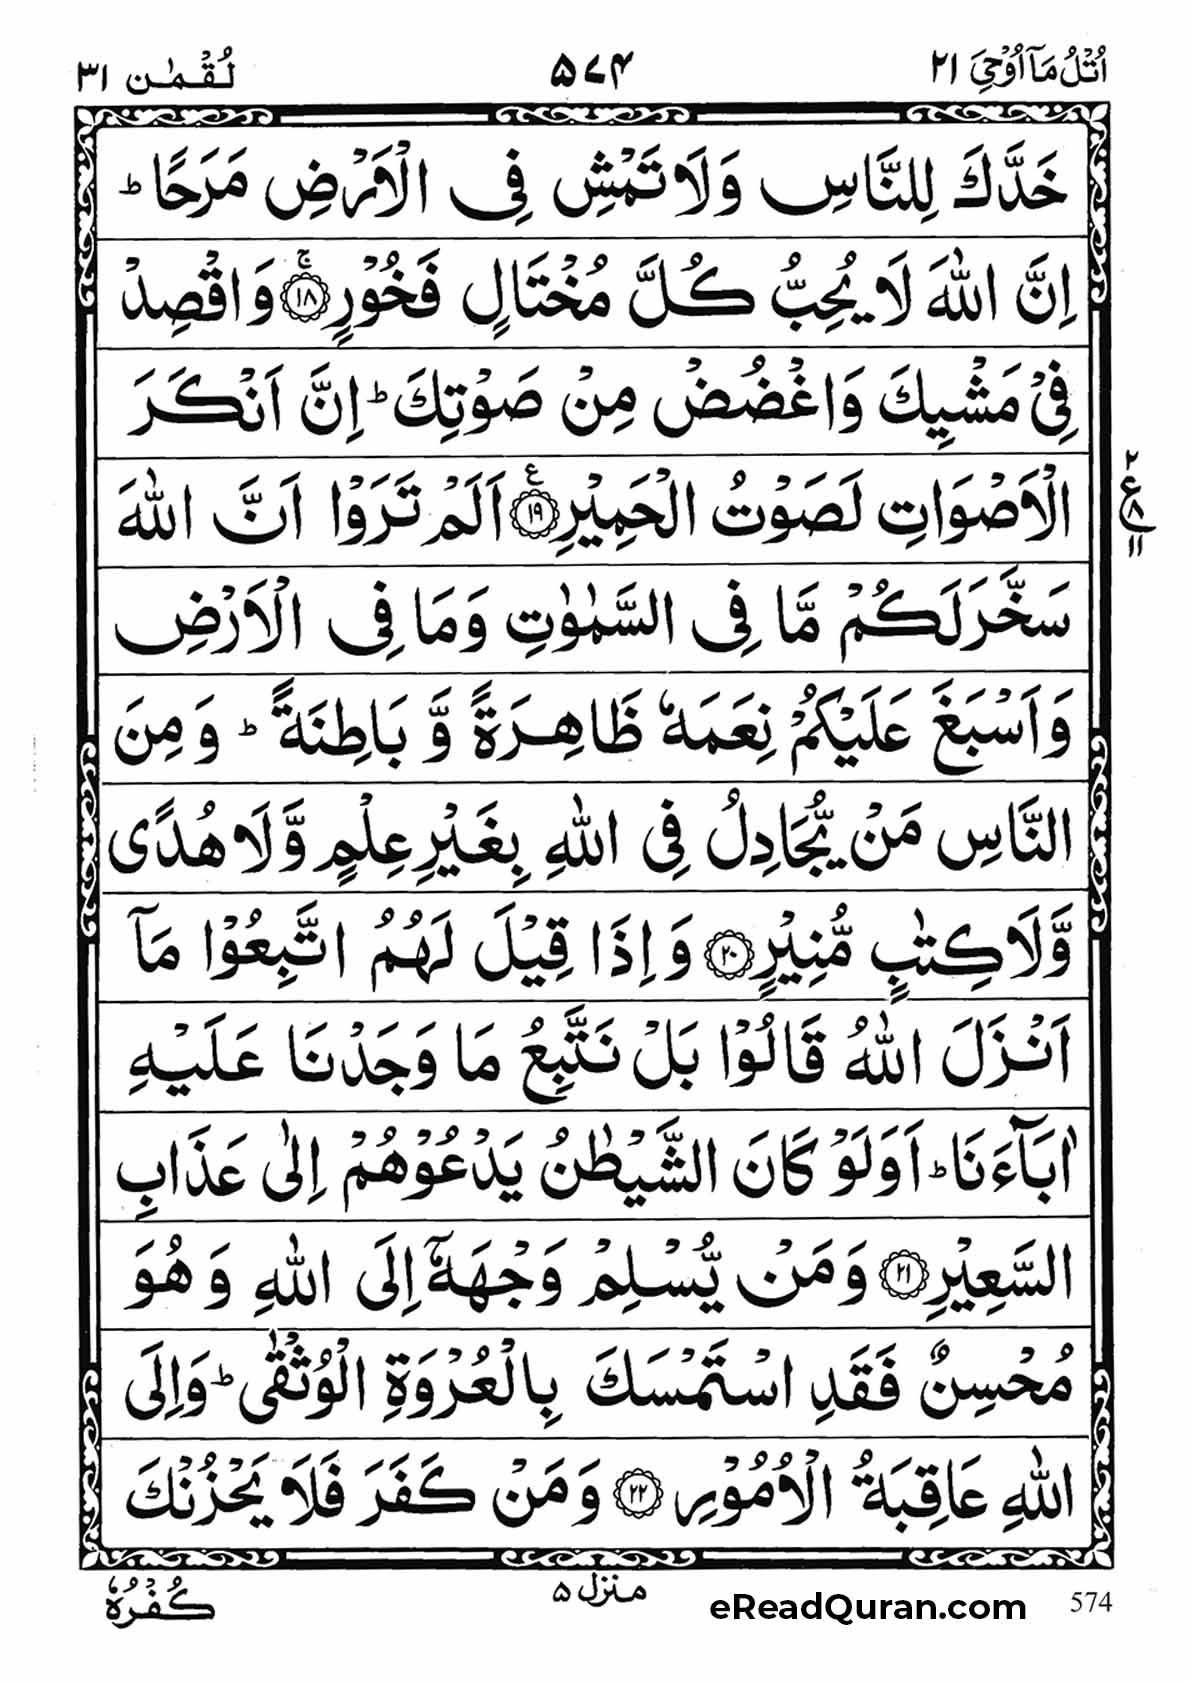 اُتْلُ مَآ اُوْحِيَ ٢١ ٥٧٤ لُقْمٰن ٣١
خَدَّكَ لِلنَّاسِ وَلَا تَمْشِ فِى الْاَرْضِ مَرَحًا ؕ
اِنَّ اللّٰهَ لَا يُحِبُّ كُلَّ مُخْتَالٍ فَخُوْرٍ ۚ ١٨ وَاقْصِدْ
فِىْ مَشْيِكَ وَاغْضُضْ مِنْ صَوْتِكَ ؕ اِنَّ اَنْكَرَ
الْاَصْوَاتِ لَصَوْتُ الْحَمِيْرِ ١٩ ع اَلَمْ تَرَوْا اَنَّ اللّٰهَ
٢ ع ٨ ١١
سَخَّرَ لَكُمْ مَّا فِى السَّمٰوٰتِ وَمَا فِى الْاَرْضِ
وَاَسْبَغَ عَلَيْكُمْ نِعَمَهٗ ظَاهِرَةً وَّ بَاطِنَةً ؕ وَمِنَ
النَّاسِ مَنْ يُّجَادِلُ فِى اللّٰهِ بِغَيْرِ عِلْمٍ وَّلَا هُدًى
وَّلَا كِتٰبٍ مُّنِيْرٍ ٢٠ وَاِذَا قِيْلَ لَهُمُ اتَّبِعُوْا مَآ
اَنْزَلَ اللّٰهُ قَالُوْا بَلْ نَتَّبِعُ مَا وَجَدْنَا عَلَيْهِ
اٰبَآءَنَا ؕ اَوَلَوْ كَانَ الشَّيْطٰنُ يَدْعُوْهُمْ اِلٰى عَذَابِ
السَّعِيْرِ ٢١ وَمَنْ يُّسْلِمْ وَجْهَهٗۤ اِلَى اللّٰهِ وَهُوَ
مُحْسِنٌ فَقَدِ اسْتَمْسَكَ بِالْعُرْوَةِ الْوُثْقٰى ؕ وَاِلَى
اللّٰهِ عَاقِبَةُ الْاُمُوْرِ ٢٢ وَمَنْ كَفَرَ فَلَا يَحْزُنْكَ
كُفْرُهٗ منزل ٥ eReadQuran.com 574